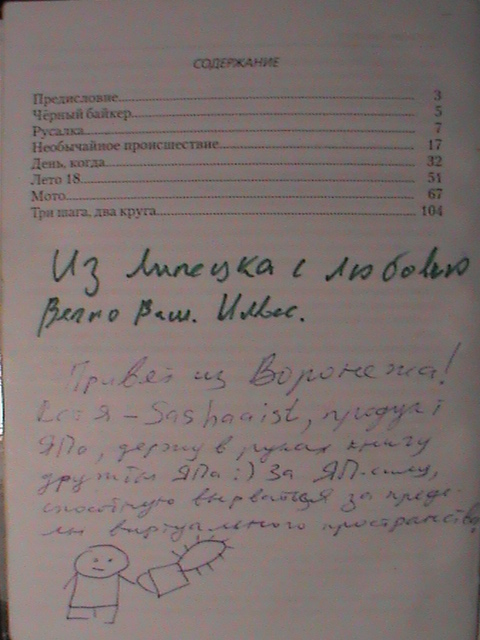 СОДЕРЖАНИЕ
Предисловие 3
Чёрный байкер 5
Русалка 7
Необычайное происшествие 17
День, когда 32
Лето 18 51
Мото 67
Три шага, два круга 104
Из Липецка с любовью
Вечно Ваш. Ильяс.
Привет из Воронежа!
я - Sashaaist, продукт
ЯПа, держу в руках книгу
дружбы ЯПа :) За ЯП-силу,
способную вырваться за преде-
лы виртуального пространства,